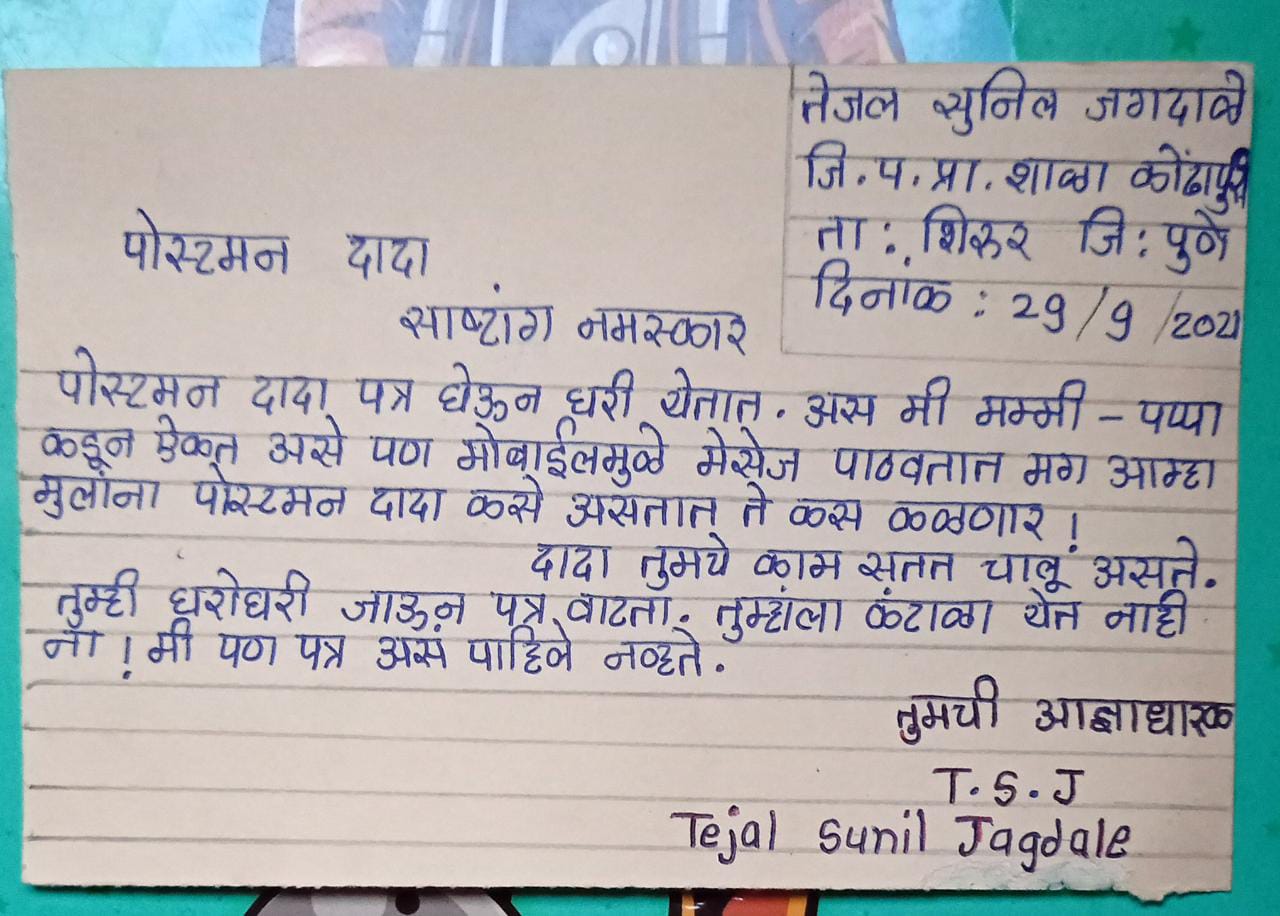 तेजल सुनिल जगदाळे
जि.प.प्रा.शाळा कोंढापुरी
ता: शिरुर जि: पुणे
दिनांक : 29/9/2021
पोस्टमन दादा
साष्टांग नमस्कार
पोस्टमन दादा पत्र घेऊन घरी येतात. अस मी मम्मी - पप्पा
कडून ऐकत असे पण मोबाईलमुळे मेसेज पाठवतात मग आम्हा
मुलांना पोस्टमन दादा कसे असतात ते कस कळणार!
दादा तुमचे काम सतत चालू असते.
तुम्ही घरोघरी जाऊन पत्र वाटता. तुम्हांला कंटाळा येत नाही
ना! मी पण पत्र असं पाहिले नव्हते.
तुमची आज्ञाधारक
T.S.J
Tejal Sunil Jagdale